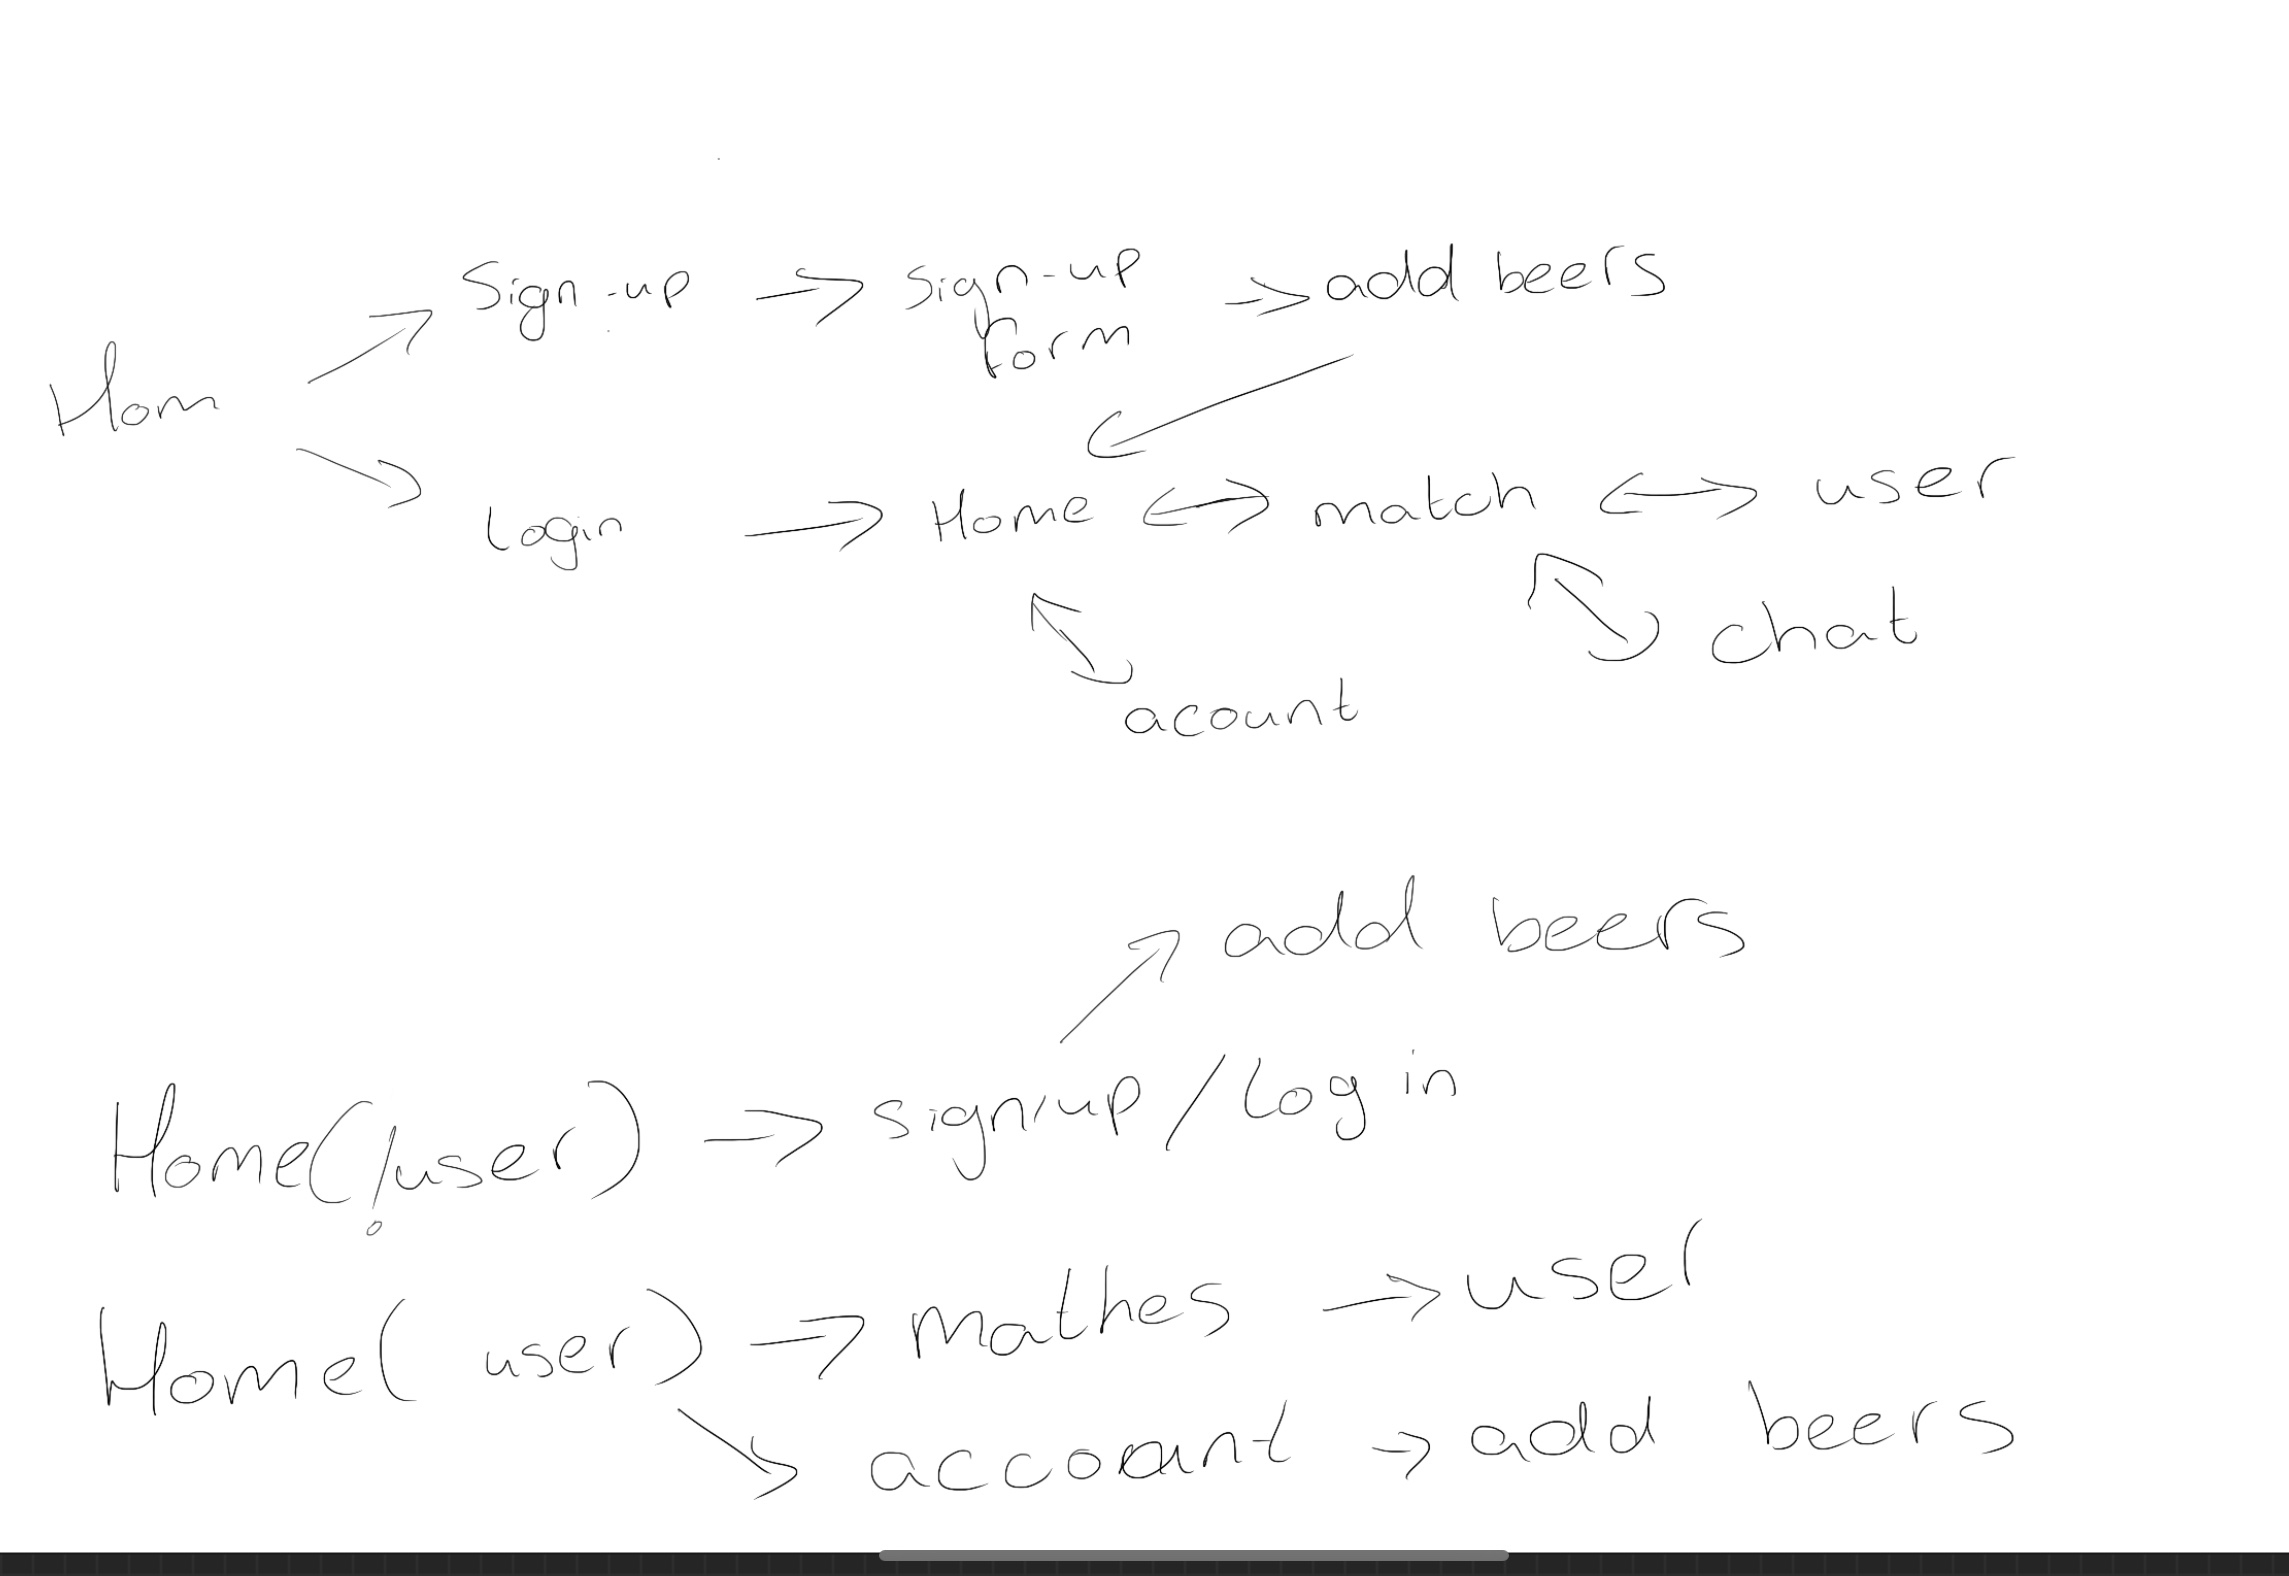 Sign-up → sign-up → add beers
form
Hom
Login → Home ↔ match ↔ user
chat
acount
add beers
Home(!user) → sign/up/Log in
Home( user) → mathes → user
accoant → add beers